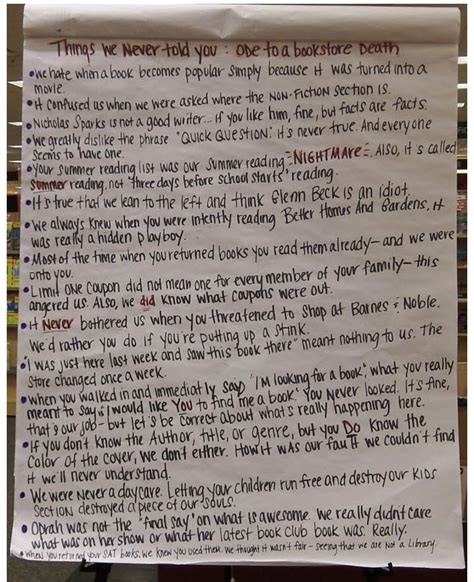 Things We Never told you: ODE to a bookstore Death
• We hate when a book becomes popular simply because it was turned into a
movie.
• It confused us when we were asked where the NON-FICTION section is.
• Nicholas Sparks is not a good writer... if you like him, fine, but facts are facts.
• We greatly dislike the phrase "QUICK QUESTION." It's never true. And everyone
seems to have one.
• Your summer reading list was our summer reading NIGHTMARE. Also, it's called
summer reading, not three days before school starts reading.
• It's true that we lean to the left and think Glenn Beck is an idiot.
• We always knew when you were intently reading Better Homes And Gardens, it
was really a hidden Playboy.
• Most of the time when you returned books you read them already - and we were
onto you.
• Limit ONE coupon did not mean one for every member of your family - this
angered us. Also, we did know what coupons were out.
• It Never bothered us when you threatened to shop at Barnes & Noble.
We'd rather you do if you're putting up a stink.
• "I was just here last week and saw this book there" meant nothing to us. The
store changed once a week.
• When you walked in and immediatly say "I'm looking for a book", what you really
meant to say is "I would like You to find me a book." You never looked. It's fine,
that's our job - but let's be correct about what's really happening here.
• If you don't know the Author, title, or genre, but you Do know the
color of the cover, we don't either. How it was our fault we couldn't find
it we'll never understand.
• We were never a daycare. Letting your children run free and destroy our KIDS
section destroyed a piece of our souls.
• Oprah was not the "final say" on what is awesome. We really didn't care
what was on her show or what her latest book club book was. Really.
• When you returned your SAT books, we knew you used them. We thought it wasn't fair - seeing that we are not a library.